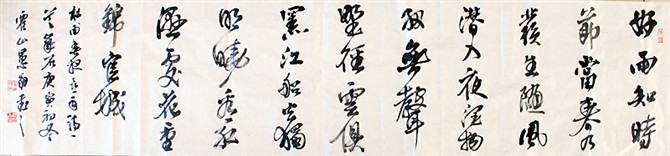 好雨知時
節當春乃
發生隨風
潜入夜潤物
細無聲
野徑雲俱
黑江船火獨
明曉看紅
濕處花重
錦官城
杜甫春夜喜雨詩一
首歲在庚寅初冬